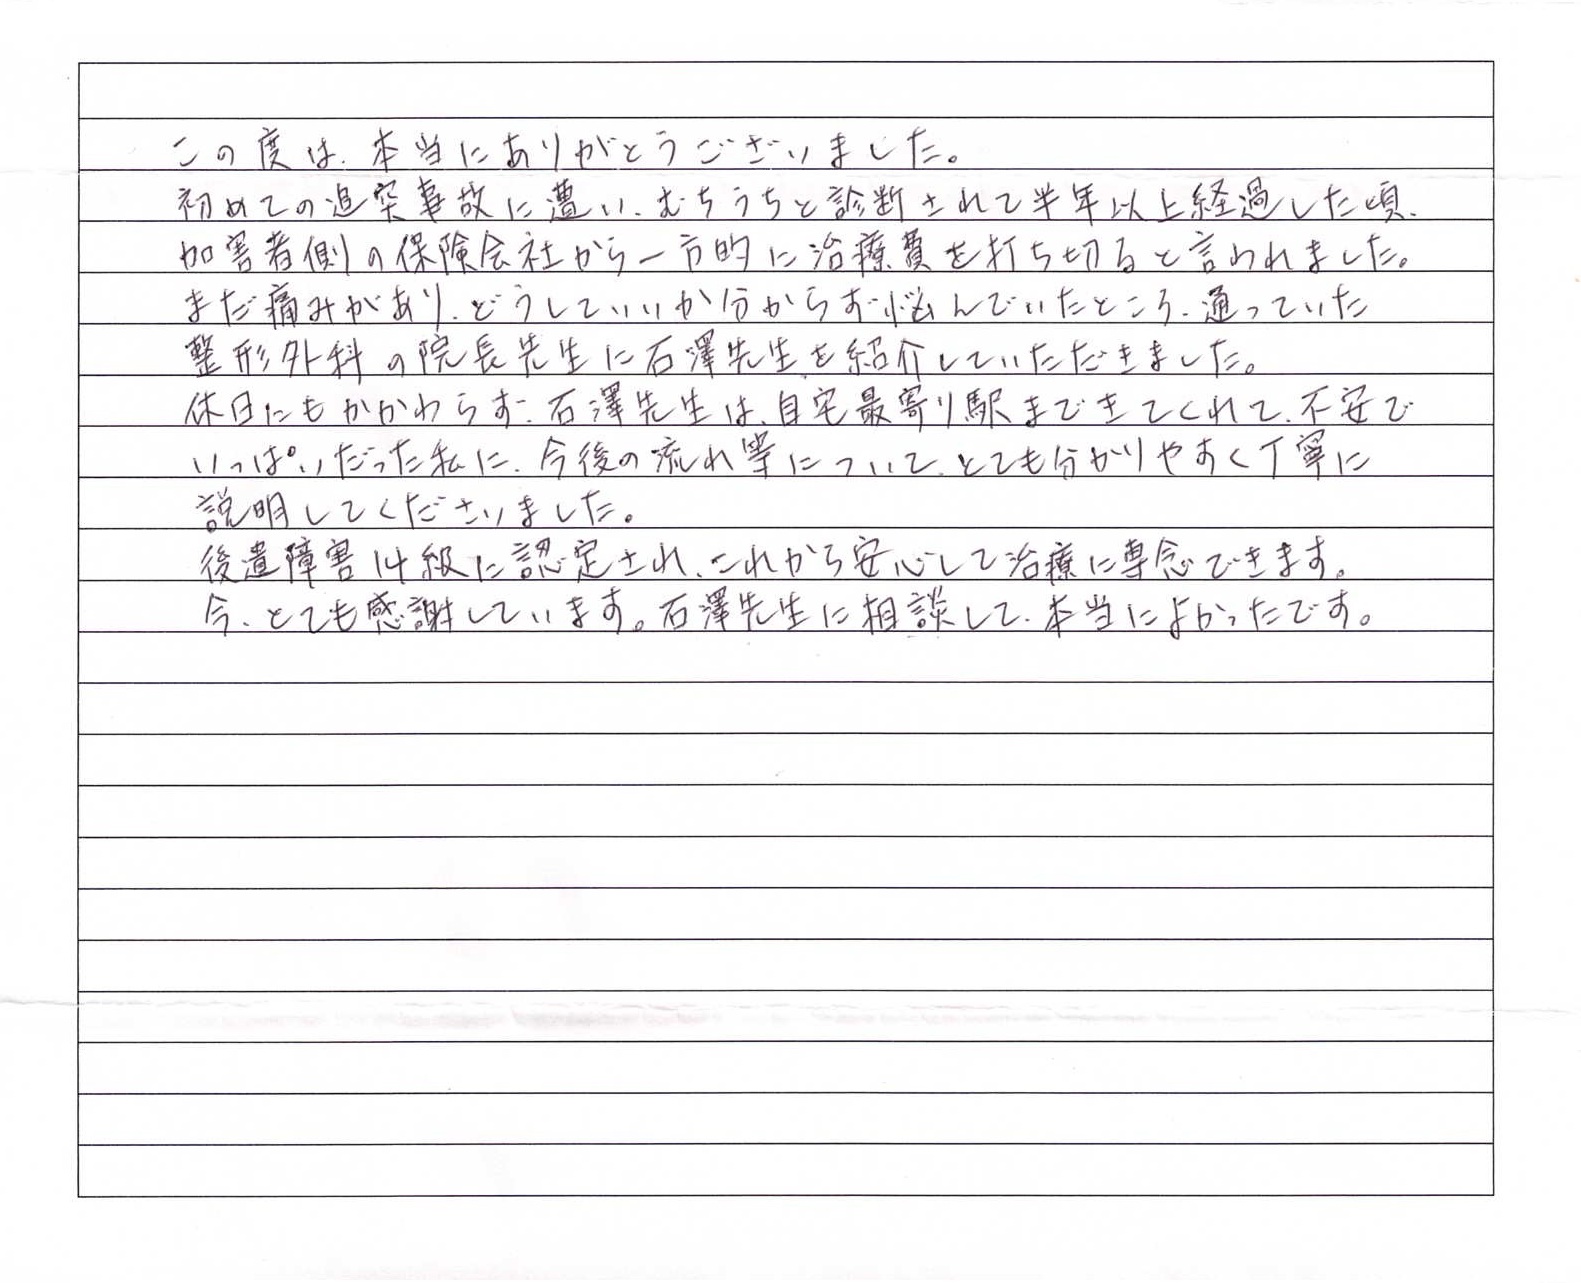 この度は、本当にありがとうございました。
初めての追突事故に遭い、むちうちと診断されて半年以上経過した頃、
加害者側の保険会社から一方的に治療費を打ち切ると言われました。
まだ痛みがあり、どうしていいか分からず悩んでいたところ、通っていた
整形外科の院長先生に石澤先生を紹介していただきました。
休日にもかかわらず、石澤先生は、自宅最寄り駅まできてくれて、不安で
いっぱいだった私に、今後の流れ等について、とても分かりやすく丁寧に
説明してくださいました。
後遺障害14級に認定され、これから安心して治療に専念できます。
今、とても感謝しています。石澤先生に相談して、本当によかったです。